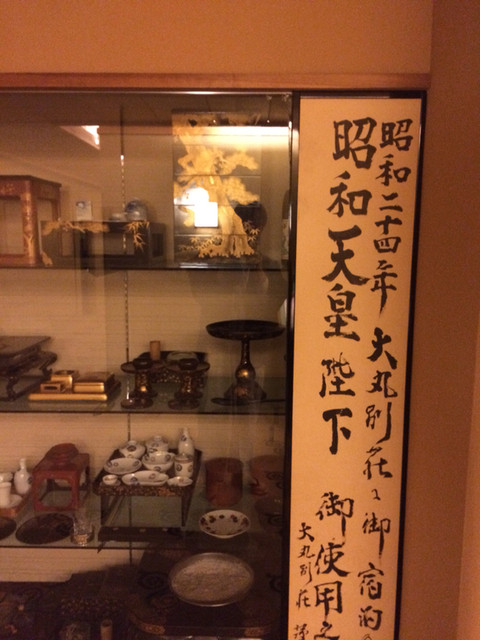 昭和二十四年 大丸別荘に御宿泊
昭和天皇陛下 御使用之
大丸別荘